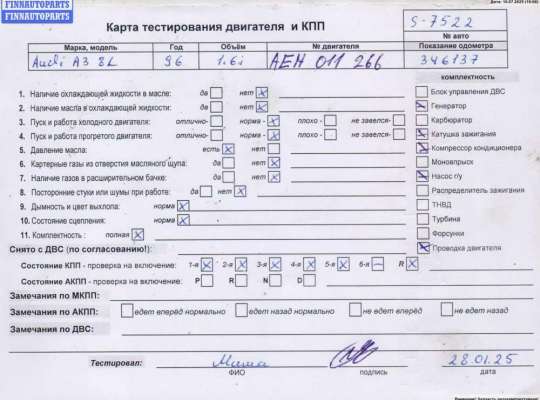 FINNAUTOPARTS
FINNAUTOPARTS
Карта тестирования двигателя и КПП
S-7522
№ авто
Марка, модель Год Объём № двигателя Показание одометра
Audi A3 8L 96 1.6i AEH 011 266 346137
комплектность
1. Наличие охлаждающей жидкости в масле: да нет
2. Наличие масла в охлаждающей жидкости: да нет
3. Пуск и работа холодного двигателя: отлично- норма - плохо - не завелся-
4. Пуск и работа прогретого двигателя: отлично- норма - плохо - не завелся-
5. Давление масла: есть нет
6. Картерные газы из отверстия масляного щупа: да нет
7. Наличие газов в расширительном бачке: да нет
8. Посторонние стуки или шумы при работе: да нет
9. Дымность и цвет выхлопа: норма
10. Состояние сцепления: норма
11. Комплектность : полная
Блок управления ДВС
Генератор
Карбюратор
Катушка зажигания
Компрессор кондиционера
Моновпрыск
Насос г/у
Распределитель зажигания
ТНВД
Турбина
Форсунки
Проводка двигателя
Снято с ДВС (по согласованию!):
Состояние КПП - проверка на включение: 1-я 2-я 3-я 4-я 5-я 6-я R
Состояние АКПП - проверка на включение: P R N D
Замечания по МКПП:
Замечания по АКПП: едет вперёд нормально едет назад нормально не едет вперёд не едет назад
Замечания по ДВС:
Тестировал: Миша 28.01.25
ФИО подпись дата